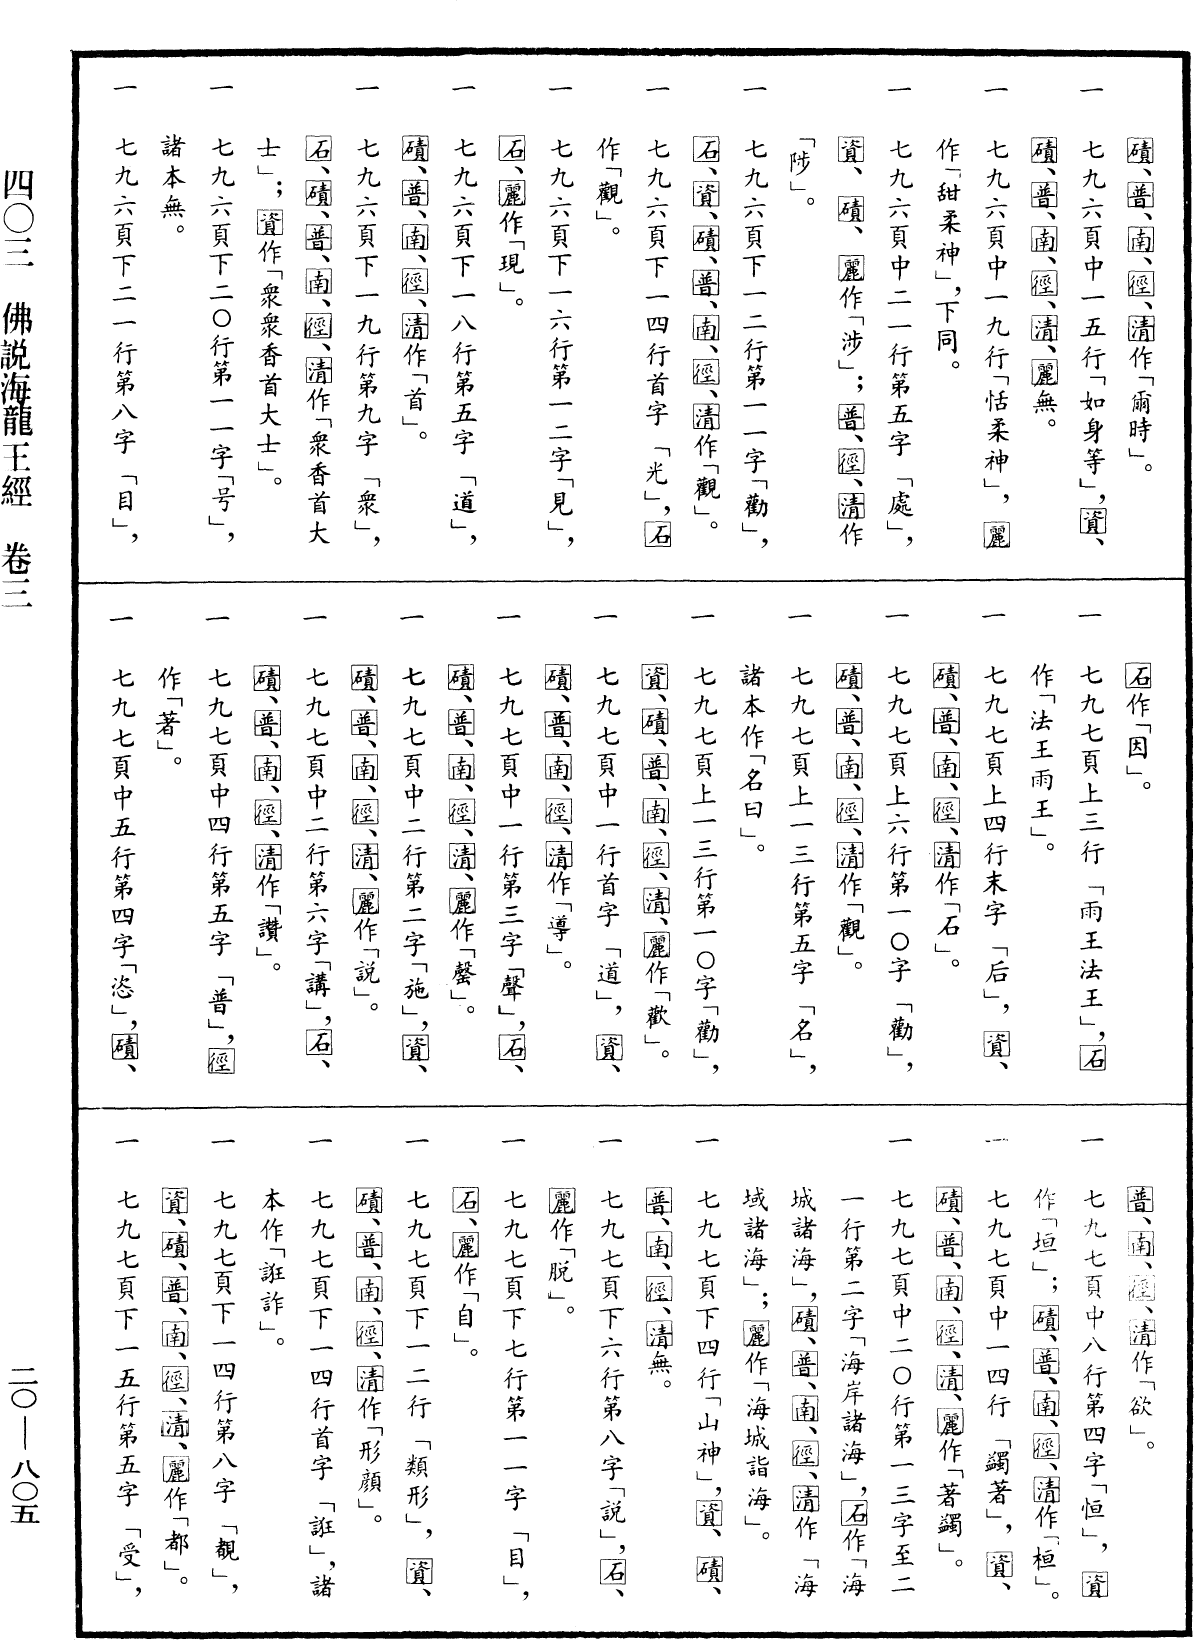 磧、普、南、徑、清作「爾時」。
一　七九六頁中一五行「如身等」，資、
磧、普、南、徑、清、麗無。
一　七九六頁中一九行「恬柔神」，麗
作「甜柔神」，下同。
一　七九六頁中二一行第五字「處」，
資、磧、麗作「涉」；普、徑、清作
「陟」。
一　七九六頁下一二行第一一字「勸」，
石、資、磧、普、南、徑、清作「觀」。
一　七九六頁下一四行首字「光」，石
作「觀」。
一　七九六頁下一六行第一二字「見」，
石、麗作「現」。
一　七九六頁下一八行第五字「道」，
磧、普、南、徑、清作「首」。
一　七九六頁下一九行第九字「衆」，
石、磧、普、南、徑、清作「衆香首大
士」；資作「衆衆香首大士」。
一　七九六頁下二〇行第一一字「号」，
諸本無。
一　七九六頁下二一行第八字「目」，
石作「因」。
一　七九七頁上三行「雨王法王」，石
作「法王雨王」。
一　七九七頁上四行末字「后」，資、
磧、普、南、徑、清作「石」。
一　七九七頁上六行第一〇字「勸」，
磧、普、南、徑、清作「觀」。
一　七九七頁上一三行第五字「名」，
諸本作「名曰」。
一　七九七頁上一三行第一〇字「勸」，
資、磧、普、南、徑、清、麗作「歡」。
一　七九七頁中一行首字「道」，資、
磧、普、南、徑、清作「導」。
一　七九七頁中一行第三字「聲」，石、
磧、普、南、徑、清、麗作「罄」。
一　七九七頁中二行第二字「施」，資、
磧、普、南、徑、清、麗作「説」。
一　七九七頁中二行第六字「講」，石、
磧、普、南、徑、清作「讚」。
一　七九七頁中四行第五字「普」，徑
作「著」。
一　七九七頁中五行第四字「恣」，磧、
普、南、徑、清作「欲」。
一　七九七頁中八行第四字「恒」，資
作「垣」；磧、普、南、徑、清作「桓」。
一　七九七頁中一四行「蠲著」，資、
磧、普、南、徑、清、麗作「著蠲」。
一　七九七頁中二〇行第一三字至二
一行第二字「海岸諸海」，石作「海
城諸海」，磧、普、南、徑、清作「海
域諸海」；麗作「海城詣海」。
一　七九七頁下四行「山神」，資、磧、
普、南、徑、清無。
一　七九七頁下六行第八字「説」，石、
麗作「脱」。
一　七九七頁下七行第一一字「目」，
石、麗作「自」。
一　七九七頁下一二行「類形」，資、
磧、普、南、徑、清作「形顔」。
一　七九七頁下一四行首字「誑」，諸
本作「誑詐」。
一　七九七頁下一四行第八字「覩」，
資、磧、普、南、徑、清、麗作「都」。
一　七九七頁下一五行第五字「受」，
四〇三　佛説海龍王經　卷三
二〇—八〇五